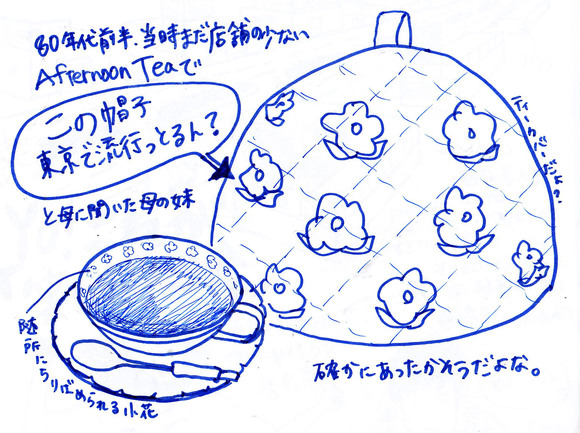 80年代前半、当時まだ店舗の少ない
Afternoon Teaで
この帽子
東京で流行っとるん?
と母に聞いた母の妹
ティーカバーだよ。
随所にちりばめられる小花
確かにあったかそうだよな。